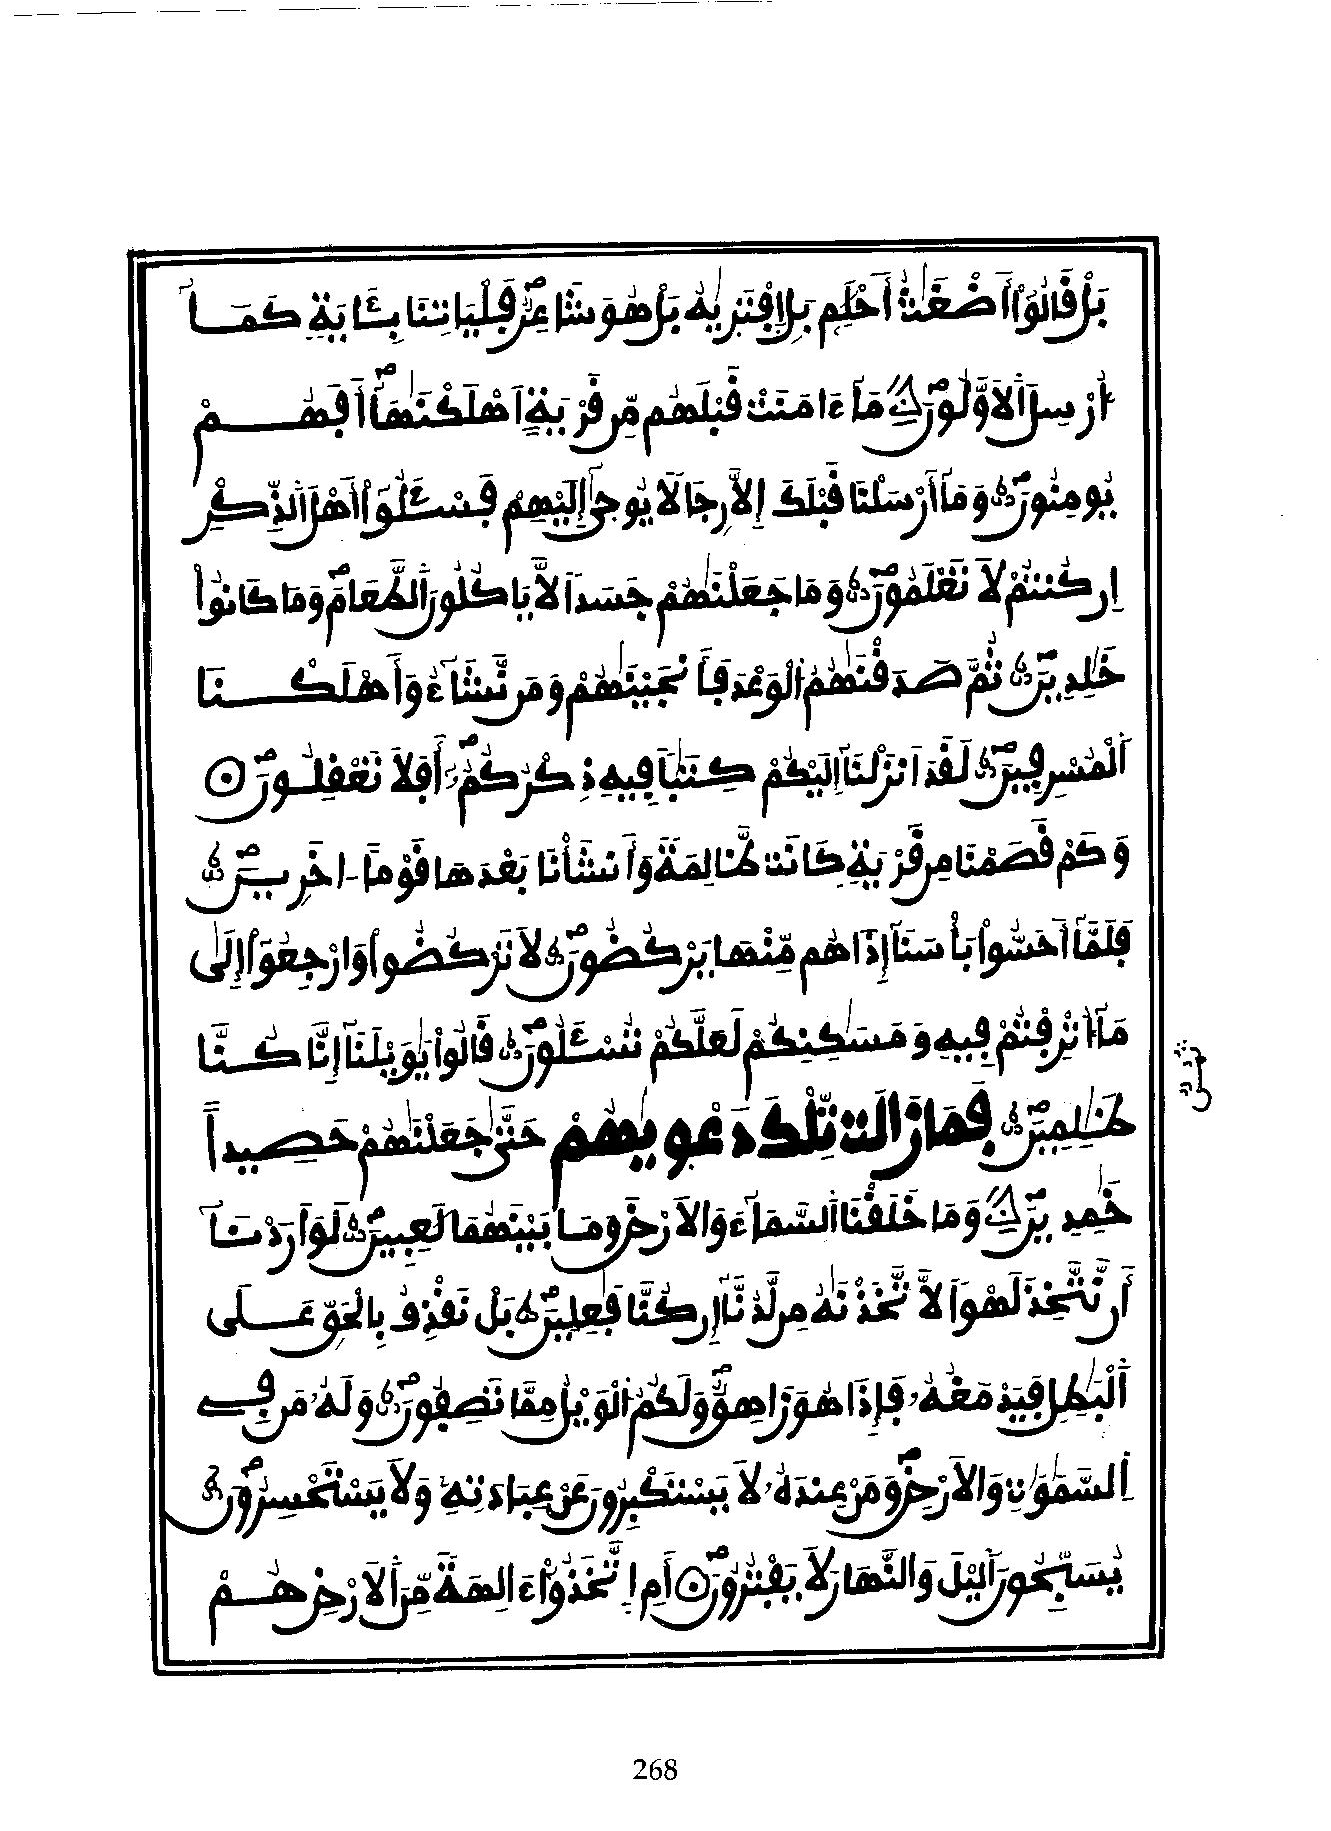 بَلْ قَالُوٓاْ أَضْغَٰثُ أَحْلَٰمِۭ بَلِ اِفْتَر۪يٰهُ بَلْ هُوَ شَاعِرٞ فَلْيَاتِنَا بِـَٔايَةٖ كَمَآ
أُرْسِلَ اَ۬لَاوَّلُونَۖ مَآ ءَامَنَتْ قَبْلَهُم مِّن قَرْيَةٍ اَهْلَكْنَٰهَآ أَفَهُمْ
يُومِنُونَۖ وَمَآ أَرْسَلْنَا قَبْلَكَ إِلَّا رِجَالاٗ يُوح۪يٰٓ إِلَيْهِمْ فَسْـَٔلُوٓاْ أَهْلَ اَ۬لذِّكْرِ
إِن كُنتُمْ لَا تَعْلَمُونَۖ وَمَا جَعَلْنَٰهُمْ جَسَداٗ لَّا يَاكُلُونَ اَ۬لطَّعَامَۖ وَمَا كَانُواْ
خَٰلِدِينَۖ ثُمَّ صَدَقْنَٰهُمُ اُ۬لْوَعْدَ فَأَنجَيْنَٰهُمْ وَمَن نَّشَآءُ وَأَهْلَكْنَا
اَ۬لْمُسْرِفِينَۖ لَقَدَ اَنزَلْنَآ إِلَيْكُمْ كِتَٰباٗ فِيهِ ذِكْرُكُمُۥٓۖ أَفَلَا تَعْقِلُونَۖ
وَكَمْ قَصَمْنَا مِن قَرْيَةٖ كَانَتْ ظَالِمَةٗ وَأَنشَأْنَا بَعْدَهَا قَوْماً اٰخَرِينَۖ
فَلَمَّآ أَحَسُّواْ بَأْسَنَآ إِذَا هُم مِّنْهَا يَرْكُضُونَۖ لَا تَرْكُضُواْ وَارْجِعُوٓاْ إِلَىٰ
مَآ أُتْرِفْتُمْ فِيهِ وَمَسَٰكِنِكُمْ لَعَلَّكُمْ تُسْـَٔلُونَۖ قَالُواْ يَٰوَيْلَنَآ إِنَّا كُنَّا
ظَٰلِمِينَۖ فَمَا زَالَت تِّلْكَ دَعْو۪يٰهُمْ حَتَّىٰ جَعَلْنَٰهُمْ حَصِيداً
خَٰمِدِينَۖ وَمَا خَلَقْنَا اَ۬لسَّمَآءَ وَالَارْضَ وَمَا بَيْنَهُمَا لَٰعِبِينَۖ لَوَ اَرَدْنَآ
أَن نَّتَّخِذَ لَهْواٗ لَّاتَّخَذْنَٰهُ مِن لَّدُنَّآ إِن كُنَّا فَٰعِلِينَۖ بَلْ نَقْذِفُ بِالْحَقِّ عَلَى
اَ۬لْبَٰطِلِ فَيَدْمَغُهُۥ فَإِذَا هُوَ زَاهِقٞۖ وَلَكُمُ اُ۬لْوَيْلُ مِمَّا تَصِفُونَۖ وَلَهُۥ مَن فِے
اِ۬لسَّمَٰوَٰتِ وَالَارْضِۖ وَمَنْ عِندَهُۥ لَا يَسْتَكْبِرُونَ عَنْ عِبَادَتِهِۦ وَلَا يَسْتَحْسِرُونَۖ
يُسَبِّحُونَ اَ۬ليْلَ وَالنَّهَارَ لَا يَفْتُرُونَۖ أَمِ اِ۪تَّخَذُوٓاْ ءَالِهَةٗ مِّنَ اَ۬لَارْضِ هُمْ
268